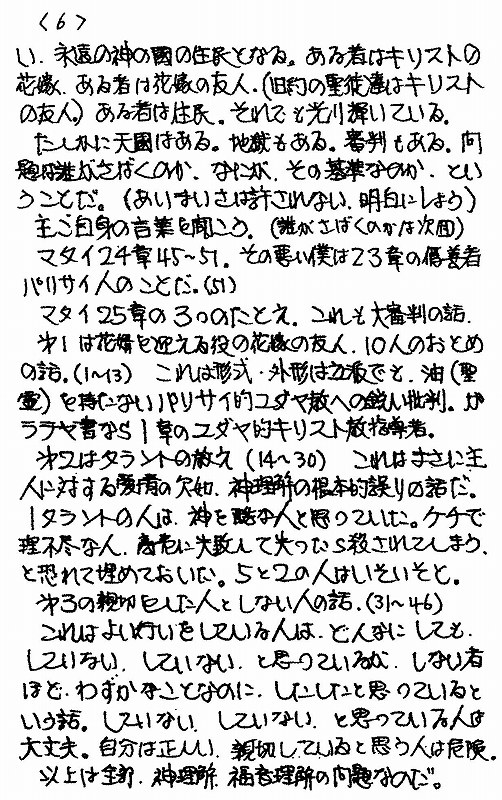 〈6〉
い、永遠の神の国の住民となる。ある者はキリストの
花嫁、ある者は花嫁の友人、(旧約の聖徒達はキリスト
の友人) ある者は住民。それでも光り輝いている。
たしかに天国はある。地獄もある。審判もある。問
題は誰がさばくのか、なにが、その基準なのか、とい
うことだ。(あいまいさは許されない、明白にしよう)
主ご自身の言葉を聞こう。(誰がさばくのかは次回)
マタイ24章45〜51。その悪い僕は23章の偽善者
パリサイ人のことだ。(51)
マタイ25章の3つのたとえ。これも大審判の話、
第1は花婿を迎える役の花嫁の友人、10人のおとめ
の話。(1〜13) これは形式・外形は立派でも、油(聖
霊)を持たないパリサイ的ユダヤ教への鋭い批判。ガ
ラテヤ書なら1章のユダヤ的キリスト教指導者。
第2はタラントの教え(14〜30) これはまさに主
人に対する愛情の欠如、神理解の根本的誤りの話だ。
1タラントの人は、神を酷な人と思っていた。ケチで
理不尽な人、商売に失敗して失ったら殺されてしまう、
と恐れて埋めておいた。5と2の人はいそいそと。
第3の親切をした人としない人の話、(31〜46)
これはよい行いをしている人は、どんなにしても、
していない、していない、と思っているが、しない者
ほど、わずかなことなのに、したしたと思っていると
いう話。していない、していない、と思っている人は
大丈夫。自分は正しい、親切していると思う人は危険。
以上は全部、神理解、福音理解の問題なのだ。